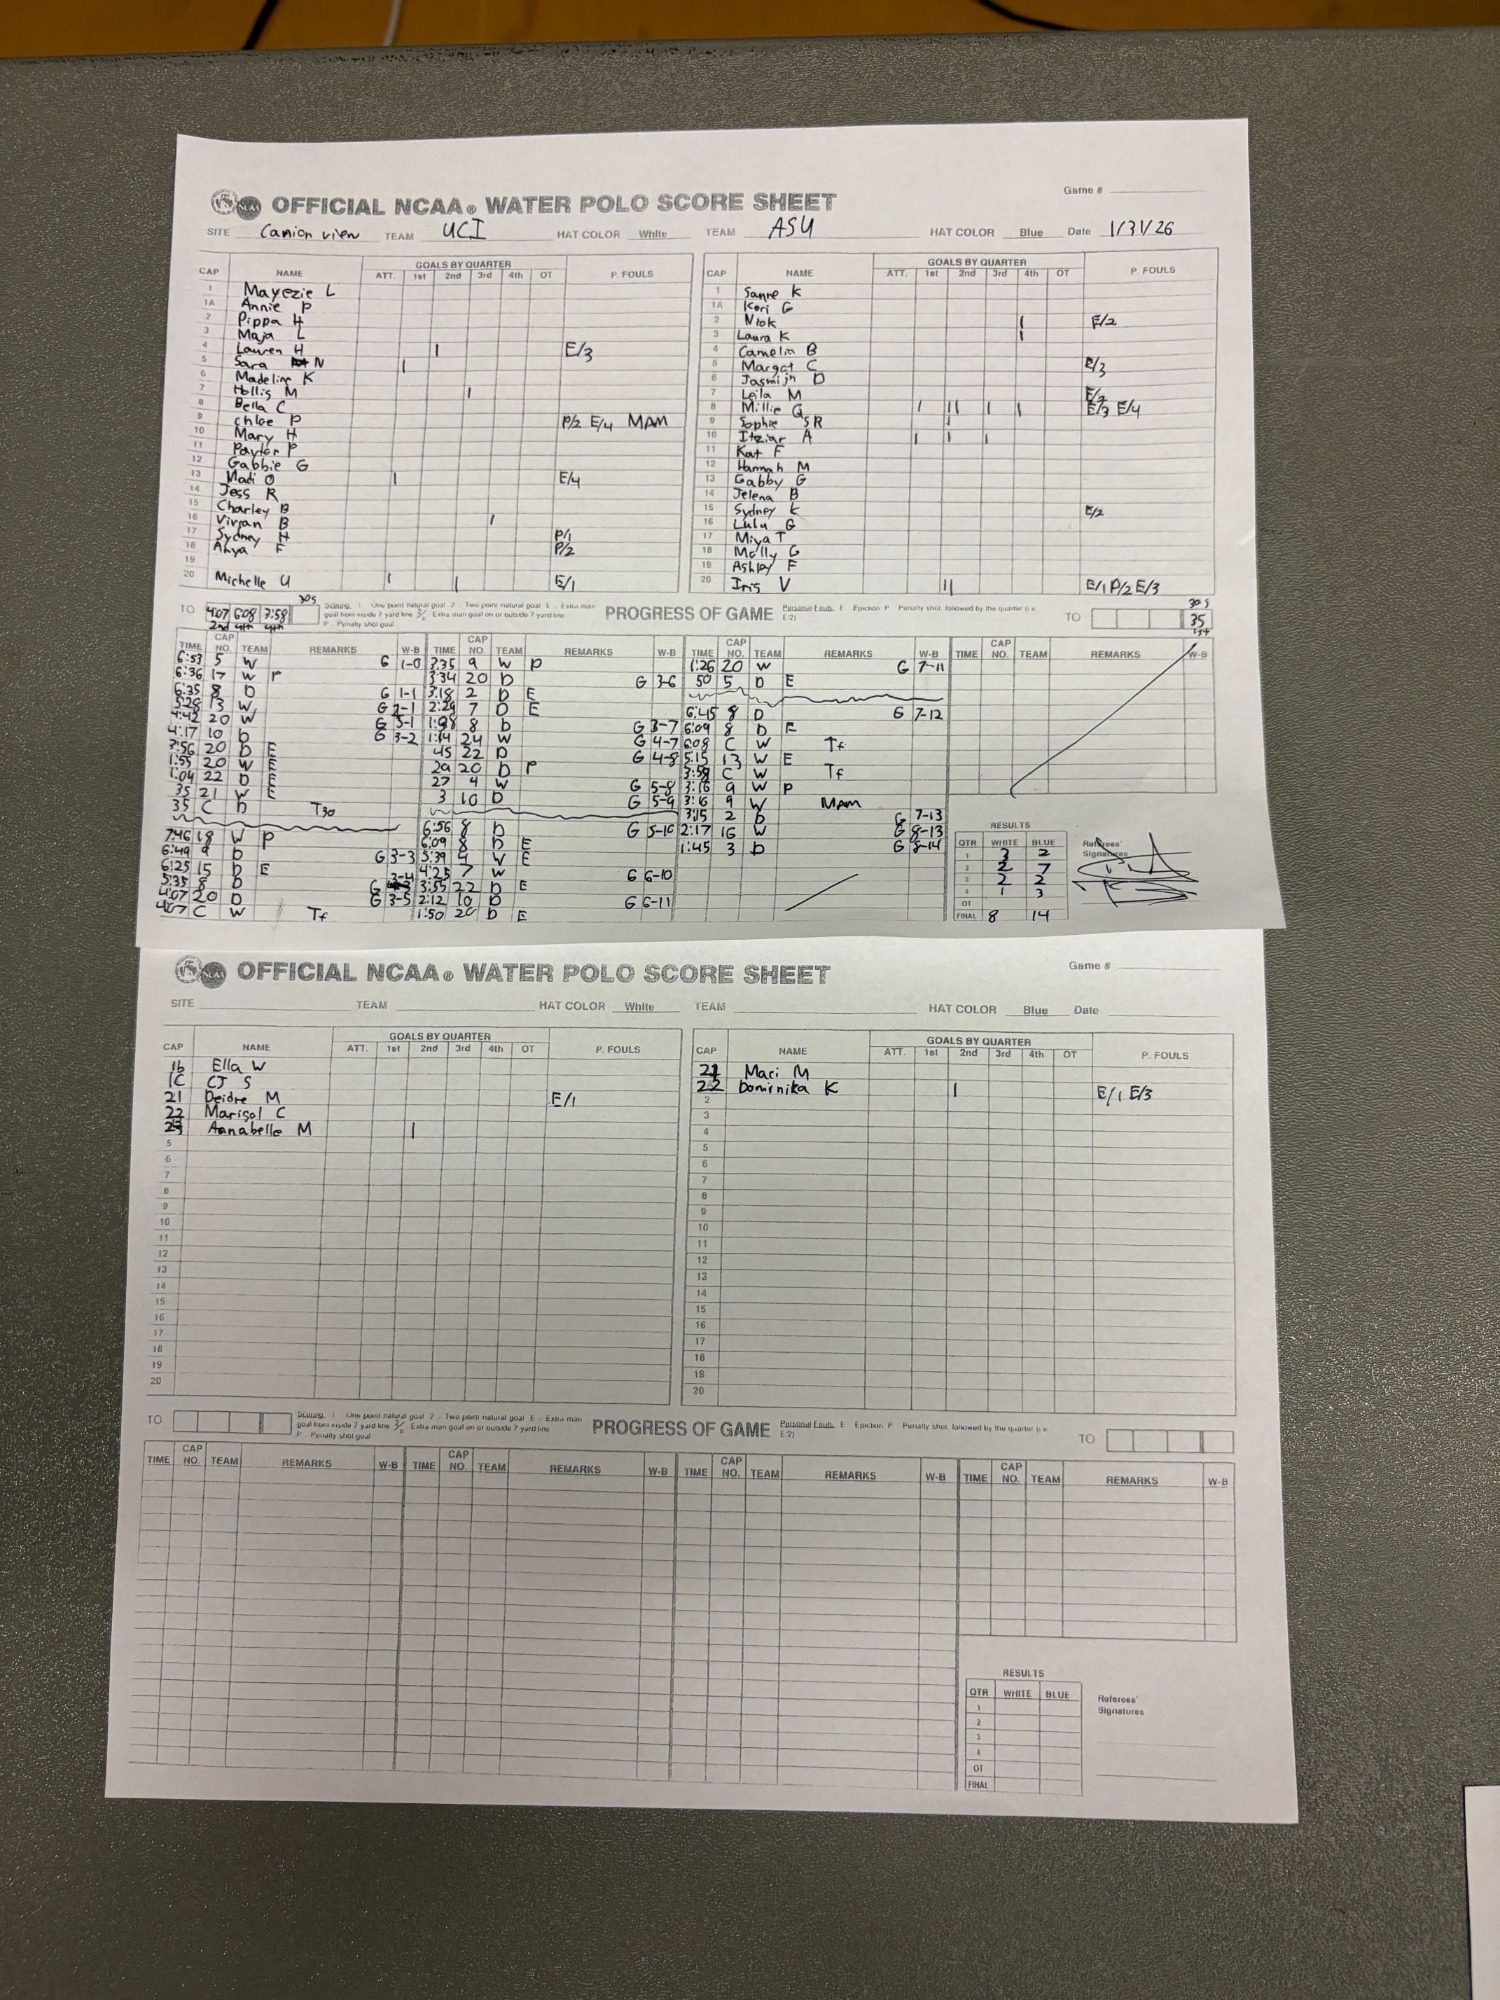 OFFICIAL NCAA® WATER POLO SCORE SHEET
Game #
SITE Canion view TEAM UCI HAT COLOR White TEAM ASU HAT COLOR Blue Date 1/31/26
CAP NAME GOALS BY QUARTER P. FOULS CAP NAME GOALS BY QUARTER P. FOULS
ATT. 1st 2nd 3rd 4th OT ATT. 1st 2nd 3rd 4th OT
1 Mayezie L 1 Sanne K
1A Annie P 1A Keri G
2 Pippa H 2 Niok | E/2
3 Maja L 3 Laura K |
4 Lauren H | E/3 4 Camelia B
5 Sara N | 5 Margot C E/3
6 Madeline K 6 Jasmijn D
7 Hollis M | 7 Leila M E/2
8 Bella C 8 Millie Q | || | | E/3 E/4
9 Chloe P P/2 E/4 MAM 9 Sophie SR |
10 Mary H 10 Itziar A | | |
11 Paytor P 11 Kat F
12 Gabbie G 12 Hannah M
13 Madi O | E/4 13 Gabby G
14 Jess R 14 Jelena B
15 Charley B 15 Sydney K E/2
16 Vivian B | 16 Lulu G
17 Sydney H P/1 17 Miya T
18 Ahya F P/2 18 Molly G
19 19 Ashley F
20 Michelle U | | E/1 20 Iris V || E/1 P/2 E/3
TO 4:07 6:08 3:58 30s
2nd 4th 4th
Scoring. 1 One point natural goal 2 - Two point natural goal E - Extra man
goal from inside 7 yard line Extra man goal on or outside 7 yard line
P - Penalty shot goal
PROGRESS OF GAME
Personal Fouls. E Ejection P Penalty shot, followed by the quarter (i.e.
E2)
TO 30s 35 1st
TIME CAP NO. TEAM REMARKS W-B TIME CAP NO. TEAM REMARKS W-B TIME CAP NO. TEAM REMARKS W-B TIME CAP NO. TEAM REMARKS W-B
6:53 5 W G 1-0
6:36 17 W P
6:35 8 D G 1-1
5:28 13 W G 2-1
4:42 20 W G 3-1
4:17 10 D G 3-2
3:56 20 D E
1:55 20 W E
1:04 22 D E
35 21 W E
35 C D T30
7:46 18 W P
6:49 9 D G 3-3
6:25 15 D E
5:35 8 D G 3-4
4:07 20 D G 3-5
4:07 C W Tf
3:35 9 W P
3:34 20 D G 3-6
3:18 2 D E
2:29 7 D E
1:98 8 D G 3-7
1:14 24 W G 4-7
45 22 D G 4-8
29 20 D P
27 4 W G 5-8
3 10 D G 5-9
6:56 8 D G 5-10
6:09 8 D E
5:39 4 W E
4:25 7 W G 6-10
3:55 22 D E
2:12 10 D G 6-11
1:50 20 D E
1:26 20 W G 7-11
50 5 D E
6:45 8 D G 7-12
6:09 8 D E
6:08 C W Tf
5:15 13 W E
3:58 C W Tf
3:16 9 W P
3:16 9 W MAM
3:15 2 D G 7-13
2:17 16 W G 8-13
1:45 3 D G 8-14
RESULTS
QTR WHITE BLUE
1 3 2
2 2 7
3 2 2
4 1 3
OT
FINAL 8 14
Referees'
Signatures
OFFICIAL NCAA® WATER POLO SCORE SHEET
Game #
SITE TEAM HAT COLOR White TEAM HAT COLOR Blue Date
CAP NAME GOALS BY QUARTER P. FOULS CAP NAME GOALS BY QUARTER P. FOULS
ATT. 1st 2nd 3rd 4th OT ATT. 1st 2nd 3rd 4th OT
1b Ella W 21 Maci M
1C CJ S 22 Dominika K | E/1 E/3
21 Deidre M E/1 2
22 Marisol C 3
23 Annabelle M | 4
5 5
6 6
7 7
8 8
9 9
10 10
11 11
12 12
13 13
14 14
15 15
16 16
17 17
18 18
19 19
20 20
TO
Scoring. 1 One point natural goal 2 - Two point natural goal E - Extra man
goal from inside 7 yard line Extra man goal on or outside 7 yard line
P - Penalty shot goal
PROGRESS OF GAME
Personal Fouls. E Ejection P Penalty shot, followed by the quarter (i.e.
E2)
TO
TIME CAP NO. TEAM REMARKS W-B TIME CAP NO. TEAM REMARKS W-B TIME CAP NO. TEAM REMARKS W-B TIME CAP NO. TEAM REMARKS W-B
RESULTS
QTR WHITE BLUE
1
2
3
4
OT
FINAL
Referees'
Signatures